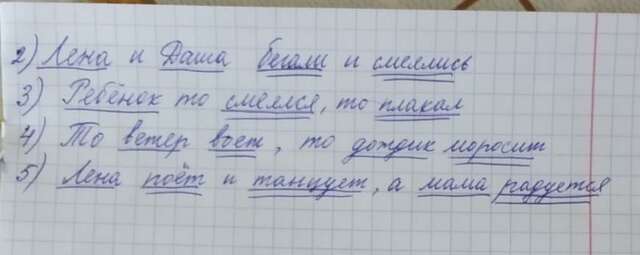 2) Лена и Даша бегали и смеялись
3) Ребёнок то смеялся, то плакал
4) То ветер воет, то дождик моросит
5) Лена поёт и танцует, а мама радуется